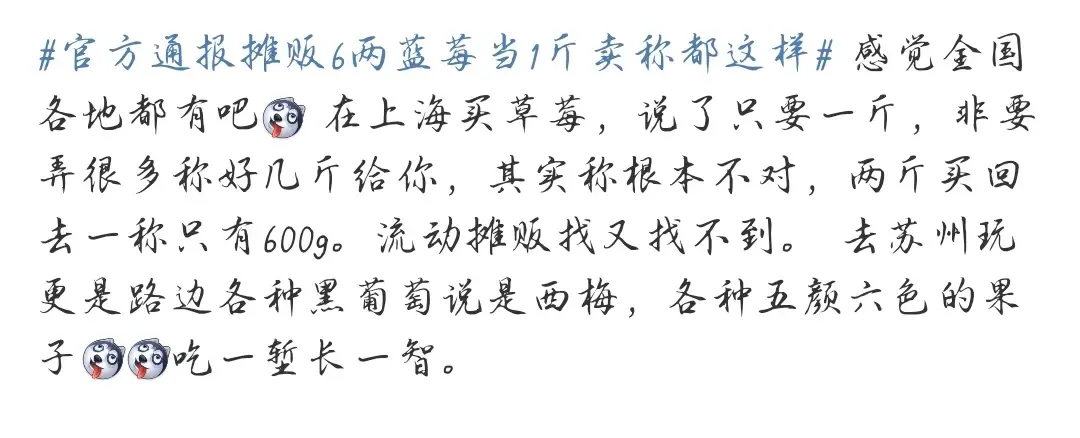 #官方通报摊贩6两蓝莓当1斤卖称都这样# 感觉全国
各地都有吧 在上海买草莓，说了只要一斤，非要
弄很多称好几斤给你，其实称根本不对，两斤买回
去一称只有600g。流动摊贩找又找不到。 去苏州玩
更是路边各种黑葡萄说是西梅，各种五颜六色的果
子吃一堑长一智。